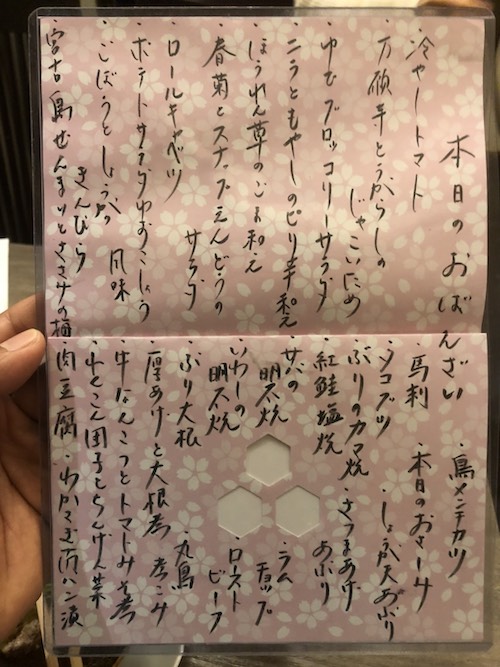 本日のおばんざい
・冷やしトマト
・万願寺とうがらしの
じゃこいため
・ゆでブロッコリーサラダ
・ニラともやしのピリ辛和え
・ほうれん草のごま和え
・春菊とスナップえんどうの
サラダ
・ロールキャベツ
・ポテトサラダゆずこしょう
風味
・ごぼうとしょうがの
きんぴら
・宮古島ぜんまいとささみの梅
・馬刺
・ソコブツ
・ぶりのカマ焼
・紅鮭塩焼
・サバの
明太焼
・いわしの
明太焼
・ぶり大根
・厚あげと大根煮
・牛なんこつとトマトみそ煮
・れんこん団子とちんげん菜
・肉豆腐
・鳥メンチカツ
・本日のおさしみ
・しょうが天あぶり
・さつまあげ
あぶり
・ラム
チョップ
・ロースト
ビーフ
・丸鳥
煮こみ
・わかさぎ南バン漬